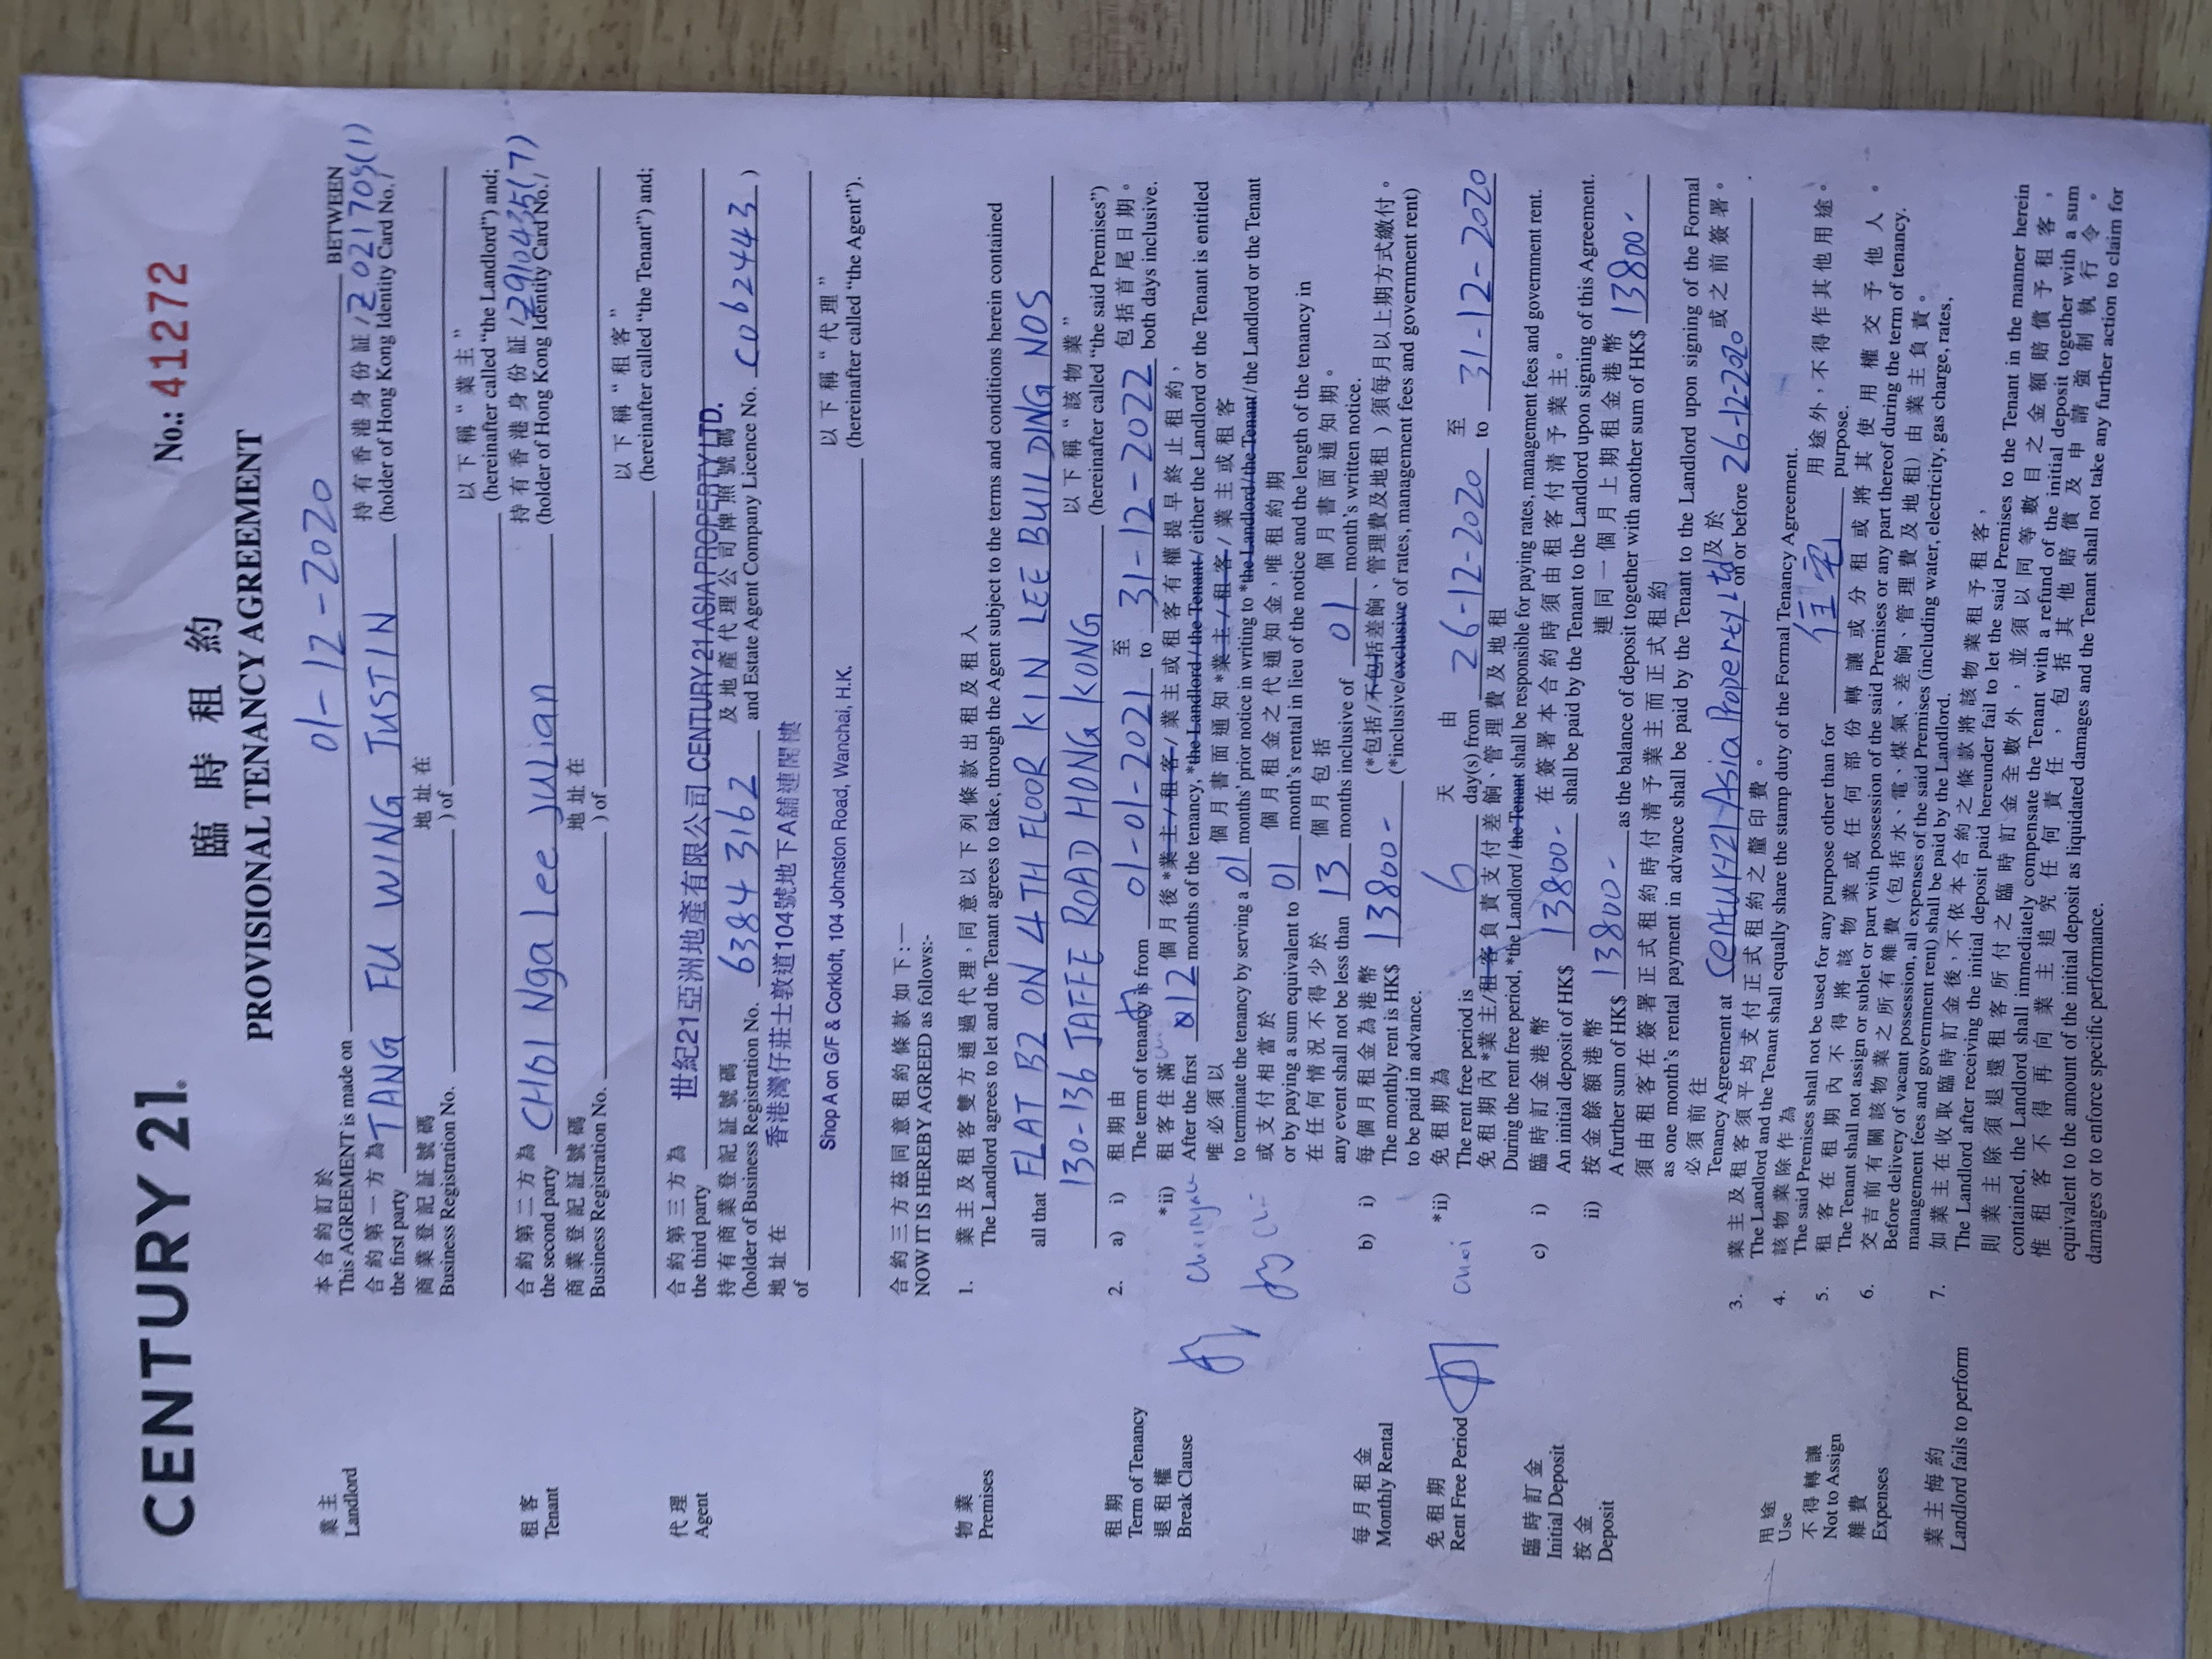 CENTURY 21®
No.: 41272
臨時租約
PROVISIONAL TENANCY AGREEMENT
本合約訂於
This AGREEMENT is made on 01-12-2020 BETWEEN
業主
Landlord
合約第一方為 TANG FU WING JUSTIN 持有香港身份証 / Z021705(1)
the first party (holder of Hong Kong Identity Card No. /
商業登記証號碼 地址在
Business Registration No. ) of
以下稱“業主”
(hereinafter called “the Landlord”) and;
租客
Tenant
合約第二方為 CHOI Nga Lee Julian 持有香港身份証 / Z910435(7)
the second party (holder of Hong Kong Identity Card No. /
商業登記証號碼 地址在
Business Registration No. ) of
以下稱“租客”
(hereinafter called “the Tenant”) and;
代理
Agent
合約第三方為 世紀21亞洲地產有限公司 CENTURY 21 ASIA PROPERTY LTD.
the third party
持有商業登記証號碼 及地產代理公司牌照號碼
(holder of Business Registration No. 6384 3162 and Estate Agent Company Licence No. C062443 )
地址在 香港灣仔莊士敦道104號地下A舖連閣樓
of
Shop A on G/F & Corkloft, 104 Johnston Road, Wanchai, H.K.
以下稱“代理”
(hereinafter called “the Agent”).
合約三方茲同意租約條款如下:—
NOW IT IS HEREBY AGREED as follows:-
物業
Premises
1. 業主及租客雙方通過代理,同意以下列條款出租及租入
The Landlord agrees to let and the Tenant agrees to take, through the Agent subject to the terms and conditions herein contained
all that FLAT B2 ON 4TH FLOOR KIN LEE BUILDING NOS
130-136 JAFFE ROAD HONG KONG 以下稱“該物業”
(hereinafter called “the said Premises”)
租期
Term of Tenancy
2. a) i) 租期由 至 包括首尾日期。
The term of tenancy is from 01-01-2021 to 31-12-2022 both days inclusive.
退租權
Break Clause
*ii) 租客住滿 個月後*業主/租客/業主或租客有權提早終止租約,
After the first 12 months of the tenancy, *the Landlord/the Tenant/ either the Landlord or the Tenant is entitled
唯必須以 個月書面通知*業主/租客/業主或租客
to terminate the tenancy by serving a 01 months' prior notice in writing to *the Landlord/the Tenant/the Landlord or the Tenant
或支付相當於 個月租金之代通知金,唯租約期
or by paying a sum equivalent to 01 month's rental in lieu of the notice and the length of the tenancy in
在任何情況不得少於 個月包括 個月書面通知期。
any event shall not be less than 13 months inclusive of 01 month's written notice.
每月租金
Monthly Rental
b) i) 每個月租金為港幣 (*包括/不包括差餉、管理費及地租)須每月以上期方式繳付。
The monthly rent is HK$ 13800- (*inclusive/exclusive of rates, management fees and government rent)
to be paid in advance.
免租期
Rent Free Period
*ii) 免租期為 天 由 至
The rent free period is 6 day(s) from 26-12-2020 to 31-12-2020
免租期內*業主/租客負責支付差餉、管理費及地租
During the rent free period, *the Landlord / the Tenant shall be responsible for paying rates, management fees and government rent.
臨時訂金
Initial Deposit
c) i) 臨時訂金港幣 在簽署本合約時須由租客付清予業主。
An initial deposit of HK$ 13800- shall be paid by the Tenant to the Landlord upon signing of this Agreement.
按金
Deposit
ii) 按金餘額港幣 連同一個月上期租金港幣
A further sum of HK$ 13800- as the balance of deposit together with another sum of HK$ 13800-
須由租客在簽署正式租約時付清予業主而正式租約
as one month's rental payment in advance shall be paid by the Tenant to the Landlord upon signing of the Formal
必須前往 及於 或之前簽署。
Tenancy Agreement at Century21 Asia Property Ltd on or before 26-12-2020 .
3. 業主及租客須平均支付正式租約之釐印費。
The Landlord and the Tenant shall equally share the stamp duty of the Formal Tenancy Agreement.
用途
Use
4. 該物業除作為 住宅 用途外,不得作其他用途。
The said Premises shall not be used for any purpose other than for purpose.
不得轉讓
Not to Assign
5. 租客在租期內不得將該物業或任何部份轉讓或分租或將其使用權交予他人。
The Tenant shall not assign or sublet or part with possession of the said Premises or any part thereof during the term of tenancy.
雜費
Expenses
6. 交吉前有關該物業之所有雜費(包括水、電、煤氣、差餉、管理費及地租)由業主負責。
Before delivery of vacant possession, all expenses of the said Premises (including water, electricity, gas charge, rates,
management fees and government rent) shall be paid by the Landlord.
業主悔約
Landlord fails to perform
7. 如業主在收取臨時訂金後,不依本合約之條款將該物業租予租客,
The Landlord after receiving the initial deposit paid hereunder fail to let the said Premises to the Tenant in the manner herein
則業主除須退還租客所付之臨時訂金全數外,並須以同等數目之金額賠償予租客,
contained, the Landlord shall immediately compensate the Tenant with a refund of the initial deposit together with a sum
惟租客不得再向業主追究任何責任,包括其他賠償及申請強制執行令。
equivalent to the amount of the initial deposit as liquidated damages and the Tenant shall not take any further action to claim for
damages or to enforce specific performance.